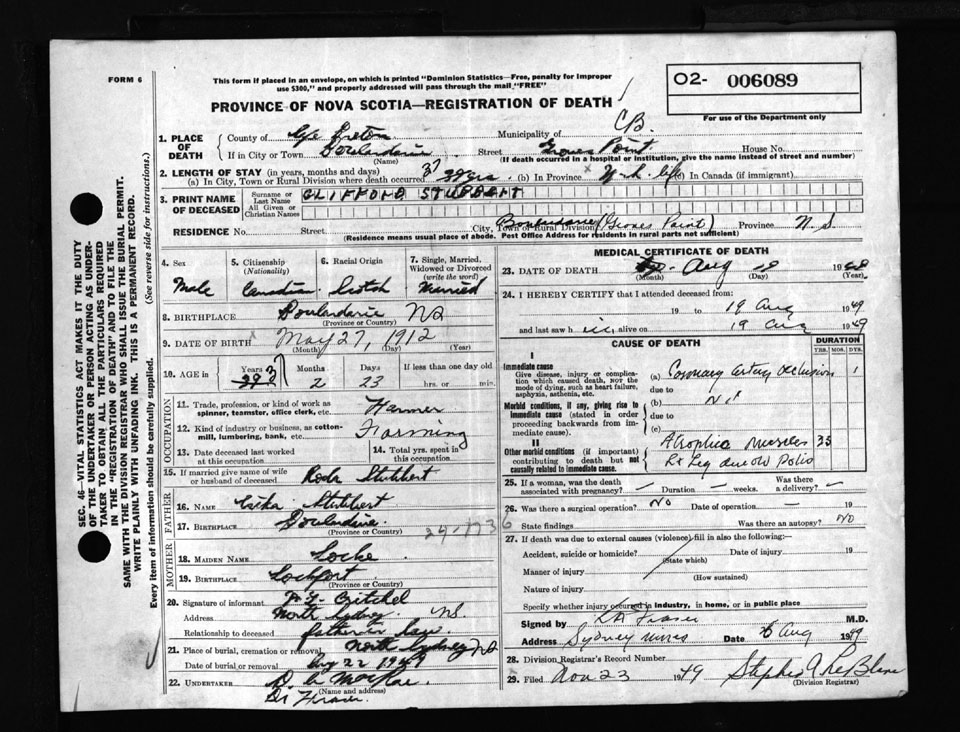 FORM 6
This form if placed in an envelope, on which is printed "Dominion Statistics—Free, penalty for improper
use $300," and properly addressed will pass through the mail "FREE"
O2- 006089
For use of the Department only
PROVINCE OF NOVA SCOTIA—REGISTRATION OF DEATH
CB.
1. PLACE OF DEATH
County of Cape Breton Municipality of
If in City or Town Boularderie Street Groves Point House No.
(Name) (If death occurred in a hospital or institution, give the name instead of street and number)
2. LENGTH OF STAY (in years, months and days)
(a) In City, Town or Rural Division where death occurred 37 yrs. (b) In Province life (c) In Canada (if immigrant)
3. PRINT NAME OF DECEASED
Surname or Last Name
All Given or Christian Names
CLIFFORD STUBBERT
RESIDENCE No. Street City, Town or Rural Division Boularderie (Groves Point) Province N.S
(Residence means usual place of abode. Post Office Address for residents in rural parts not sufficient)
4. Sex
Male
5. Citizenship
(Nationality)
Canadian
6. Racial Origin
Scotch
7. Single, Married, Widowed or Divorced
(write the word)
Married
8. BIRTHPLACE Boularderie NS
(Province or Country)
9. DATE OF BIRTH May 27, 1912
(Month) (Day) (Year)
10. AGE in
Years 37
Months 2
Days 23
If less than one day old
hrs. or min.
OCCUPATION
11. Trade, profession, or kind of work as
spinner, teamster, office clerk, etc. Farmer
12. Kind of industry or business, as cotton-
mill, lumbering, bank, etc. Farming
13. Date deceased last worked
at this occupation
14. Total yrs. spent in
this occupation
15. If married give name of wife
or husband of deceased Roda Stubbert
FATHER
16. NAME Stubbert
17. BIRTHPLACE Boularderie
(Province or Country)
MOTHER
18. MAIDEN NAME Locke
19. BIRTHPLACE Lockport
(Province or Country)
20. Signature of informant
Address North Sydney NS.
Relationship to deceased father in law
21. Place of burial, cremation or removal North Sydney NS
Date of burial or removal Aug 22 1949
22. UNDERTAKER
(Name and address)
Dr Fraser.
MEDICAL CERTIFICATE OF DEATH
23. DATE OF DEATH Aug
(Month) (Day) (Year)
24. I HEREBY CERTIFY that I attended deceased from:
19 to 19 Aug 1949
and last saw him alive on 19 Aug 1949
CAUSE OF DEATH
DURATION
YRS. MOS. DYS.
I
Immediate cause
Give disease, injury or complica-
tion which caused death, NOT the
mode of dying, such as heart failure,
asphyxia, asthenia, etc.
(a) Coronary artery occlusion 1
due to
Morbid conditions, if any, giving rise to
immediate cause (stated in order
proceeding backwards from im-
mediate cause).
(b)
due to
(c)
II
Other morbid conditions (if important)
contributing to death but not
causally related to immediate cause.
Atrophia muscles 35
Lt Leg due old Polio
25. If a woman, was the death
associated with pregnancy? — Duration — weeks. Was there
a delivery? —
26. Was there a surgical operation? No Date of operation — 19
State findings Was there an autopsy? No
27. If death was due to external causes (violence) fill in also the following:—
Accident, suicide or homicide? Date of injury 19
(State which)
Manner of injury
(How sustained)
Nature of injury
Specify whether injury occurred in industry, in home, or in public place
Signed by Fraser M.D.
Address Sydney Mines Date Aug 1949
28. Division Registrar's Record Number
29. Filed Nov 23 1949 Stephen A LeBlanc
(Division Registrar)
SEC. 46—VITAL STATISTICS ACT MAKES IT THE DUTY
OF THE UNDERTAKER OR PERSON ACTING AS UNDER-
TAKER TO OBTAIN ALL THE PARTICULARS REQUIRED
IN THE "REGISTRATION OF DEATH" AND TO FILE THE
SAME WITH THE DIVISION REGISTRAR WHO SHALL ISSUE THE BURIAL PERMIT.
WRITE PLAINLY WITH UNFADING INK. THIS IS A PERMANENT RECORD.
Every item of information should be carefully supplied. (See reverse side for instructions.)